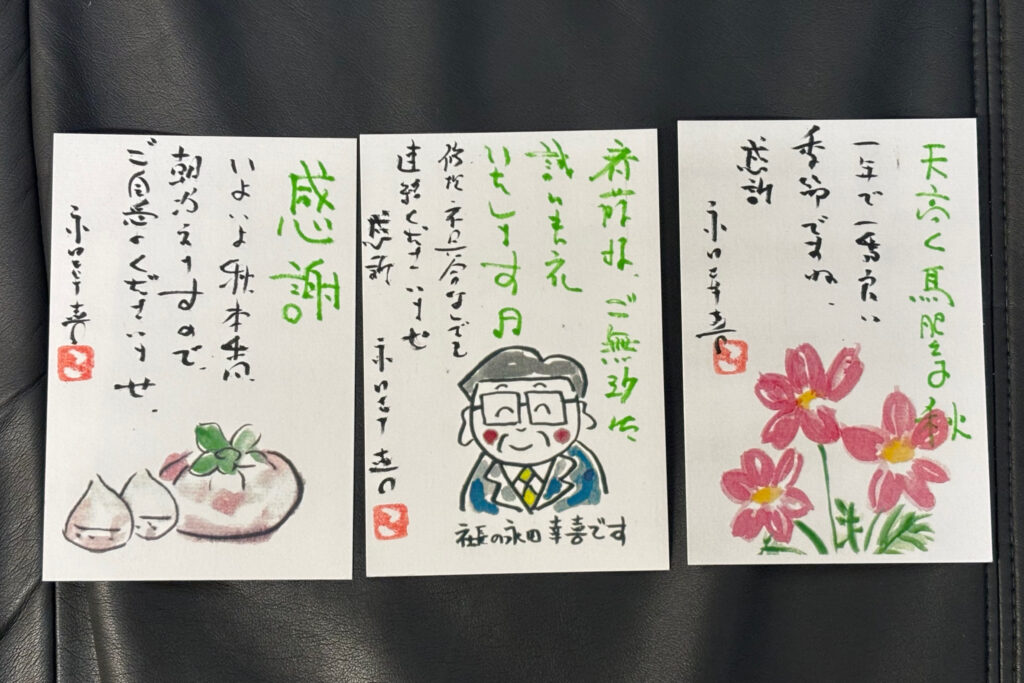 感謝
いよいよ秋本番、
朝冷えますので
ご自愛くださいませ。
永田幸喜
ご無沙汰
誠に失礼
いたします
なんでも
連絡くださいませ
感謝
永田幸喜
社長の永田幸喜です
天高く馬肥ゆる秋
一年で一番良い
季節ですね、
感謝
永田幸喜